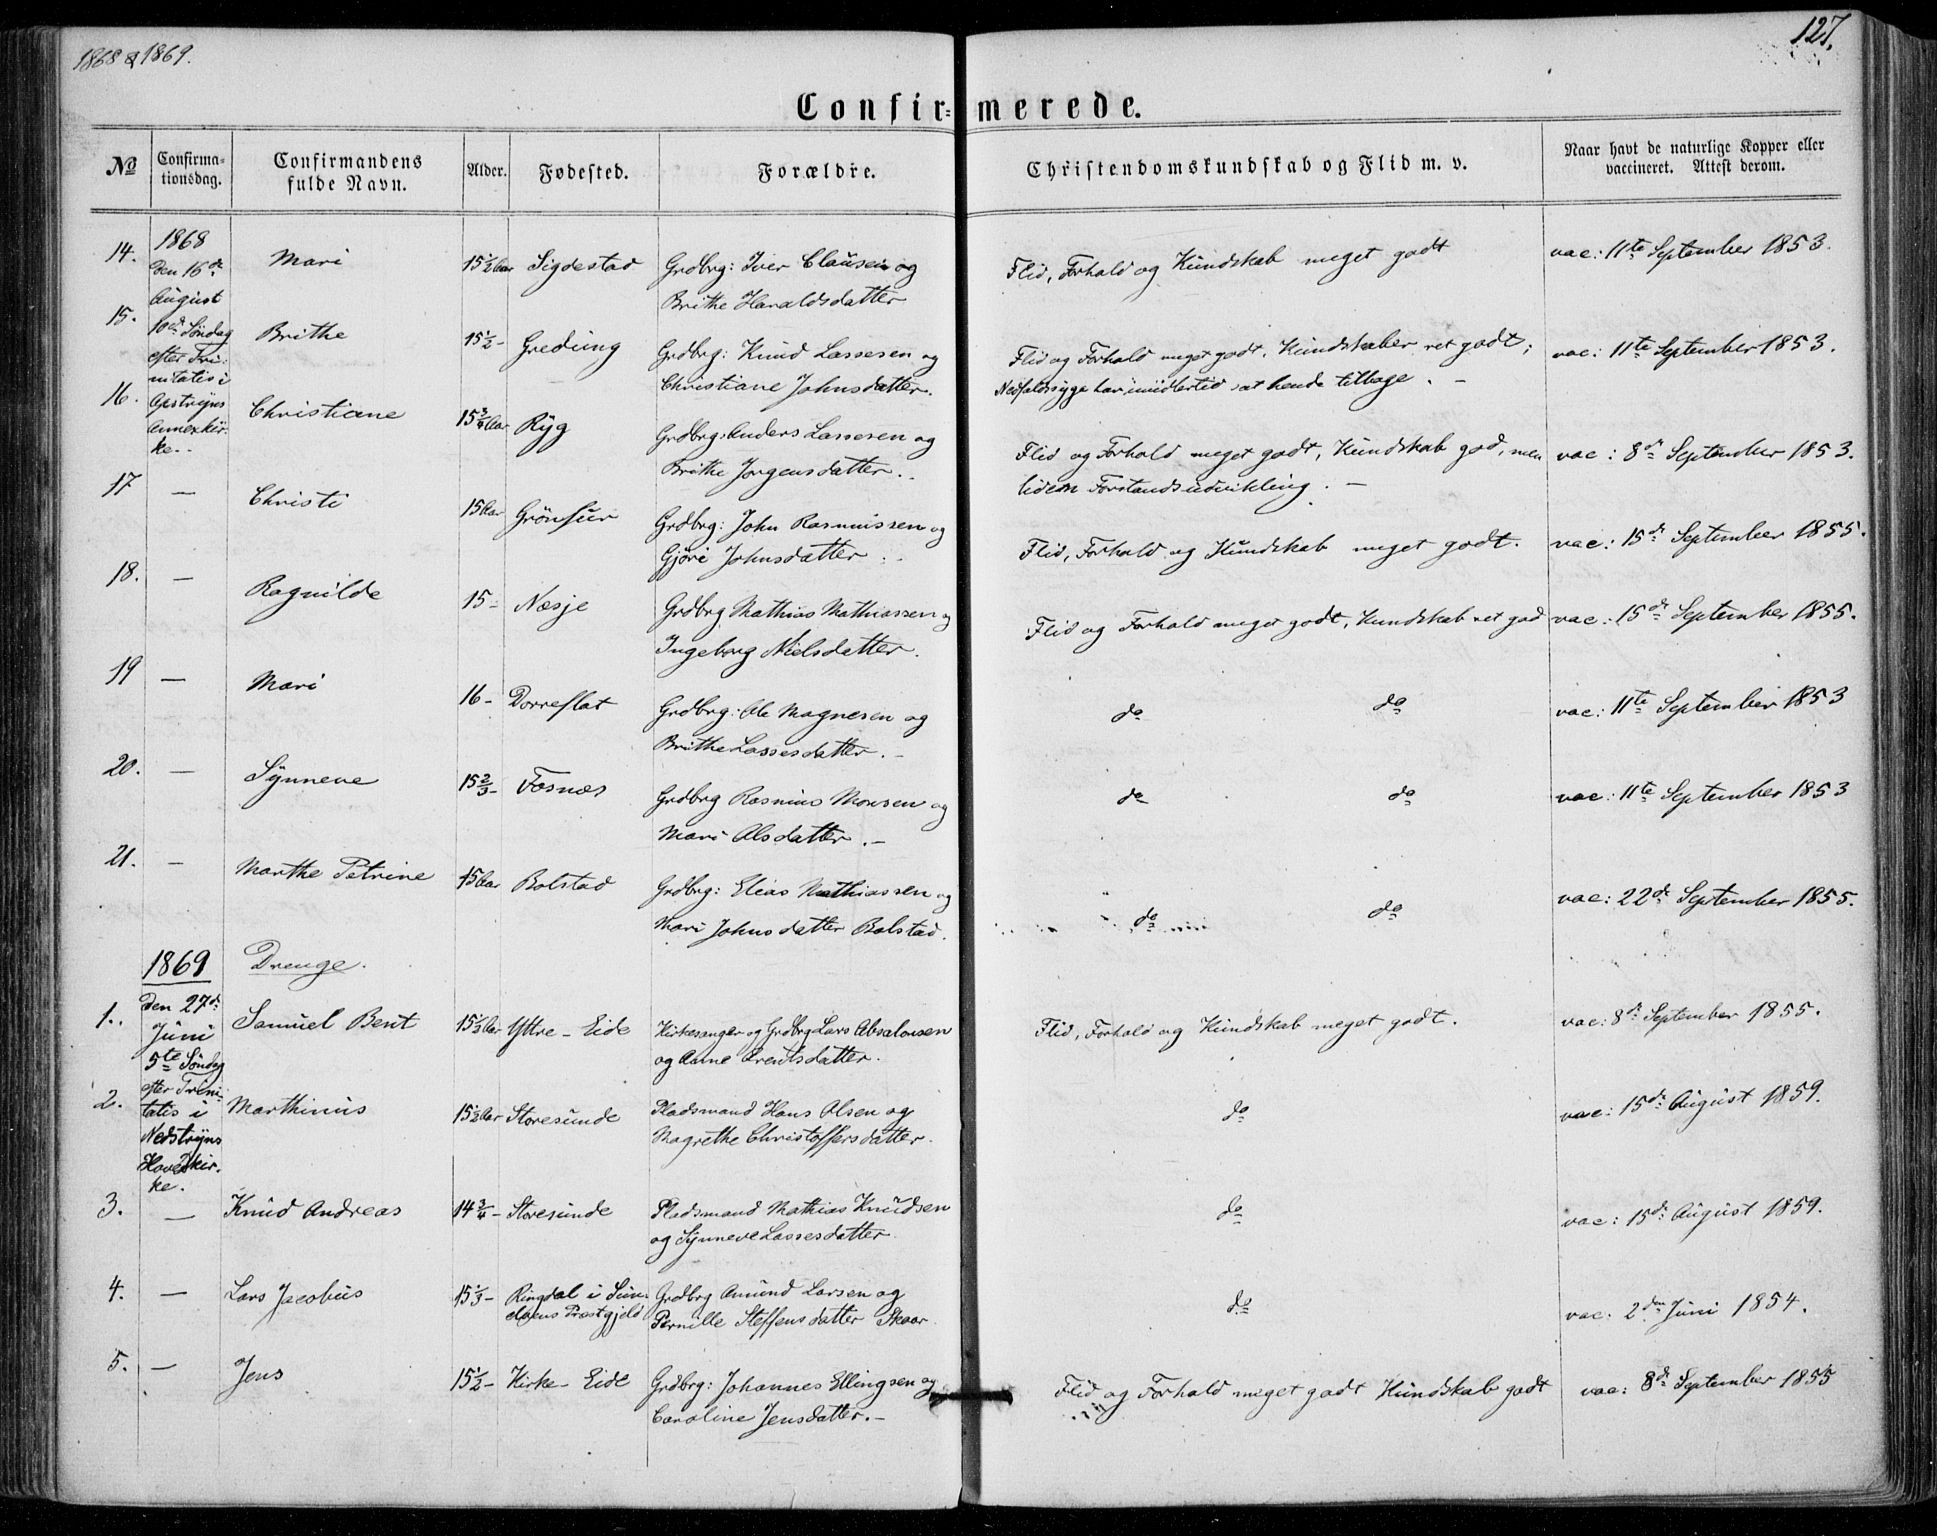 1868 & 1869.
127.
Confirmerede.
No
Confirmationsdag.
Confirmandens fulde Navn.
Alder.
Fødested.
Forældre.
Christendomskundskab og Flid m. v.
Naar havt de naturlige Kopper eller vaccineret. Attest derom.
14. 1868 Den 16de August Mari 15 1/2 Aar Sigdestad Grdbrg: Iver Clausen og
Brithe Haraldsdatter
Flid, Forhold og Kundskab meget godt
vac: 11te September 1853.
15. 10de Søndag efter Trinitatis i Brithe 15 1/2 - Greding Grdbrg: Knud Lassesen og
Christiane Johnsdatter.
Flid og Forhold meget godt, Kundskaber ret godt;
Nedfaldssyge har imidlertid sat hende tilbage. -
vac: 11te September 1853.
16. Opstryns Annexkirke. Christiane 15 3/4 Aar Ryg Grdbrg: Anders Lassesen og
Brithe Jørgensdatter.
Flid og Forhold meget godt, Kundskab god, men
liden Forstandsudvikling. -
vac: 8de September 1853.
17 - Christi 15 Aar Grönfur Grdbrg: John Rasmussen og
Gjöri Johnsdatter
Flid, Forhold og Kundskab meget godt.
vac: 15de September 1855.
18. - Ragnilde 15 - Nesje Grdbrg Mathias Mathiassen og
Ingeborg Nielsdatter.
Flid og Forhold meget godt, Kundskab ret god
vac: 15de September 1855.
19 - Mari 16 - Dorreflat Grdbrg: Ole Magnesen og
Brithe Lassesdatter. -
do do
vac: 11te September 1853
20. - Synneve 15 2/3 - Fosnæs Grdbrg Rasmus Monsen og
Mari Olsdatter. -
do do
vac: 11te September 1853
21. - Marthe Petrine 15 Aar Bolstad Grdbrg: Elias Mathiassen og
Mari Johnsdatter Bolstad.
do do
vac: 22de September 1855.
1869 Drenge.
1. Den 27de Juni 5te Søndag Samuel Bent 15 1/2 Aar Yttre-Eide Kirkesanger og Grdbrg Lars Absalonsen
og Anne Brentsdatter.
Flid, Forhold og Kundskab meget godt.
vac: 8de September 1855.
2. efter Trinitatis i Nedstryns Hovedkirke. Marthinus 15 1/2 Aar Storesunde Pladsmand Hans Olsen og
Magrethe Christoffersdatter.
do
vac: 15de August 1859.
3. - Knud Andreas 14 3/4 - Storesunde Pladsmand Mathias Knudsen
og Synneve Lassesdatter
do
vac: 15de August 1859.
4. - Lars Jacobus 15 1/3 - Ringdal i Præstgjeld Grdbrg Amund Larsen og
Pernille Steffensdatter Skaar
do
vac: 2den Juni 1854.
5. - Jens 15 1/2 - Kirke-Eide Grdbrg: Johannes Ellingsen og
Caroline Jensdatter. -
Flid og Forhold meget godt Kundskab godt
vac: 8de September 1855